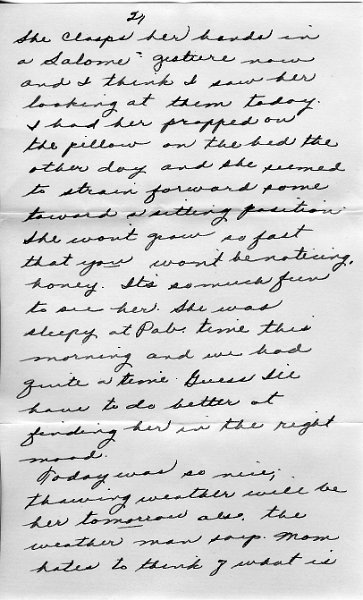 24
She clasps her hands in
a Salome - gesture now
and I think I saw her
looking at them today.
I had her propped on
the pillow on the bed the
other day and she seemed
to strain forward some
toward a sitting position.
She wont grow so fast
that you won't be noticing,
honey. It's so much fun
to see her. She was
sleepy at Pab. time this
morning and we had
quite a time. Guess I'll
have to do better at
finding her in the right
mood.
Today was so nice;
thawing weather will be
her tomorrow also, the
weather man says. Mom
hates to think of what is